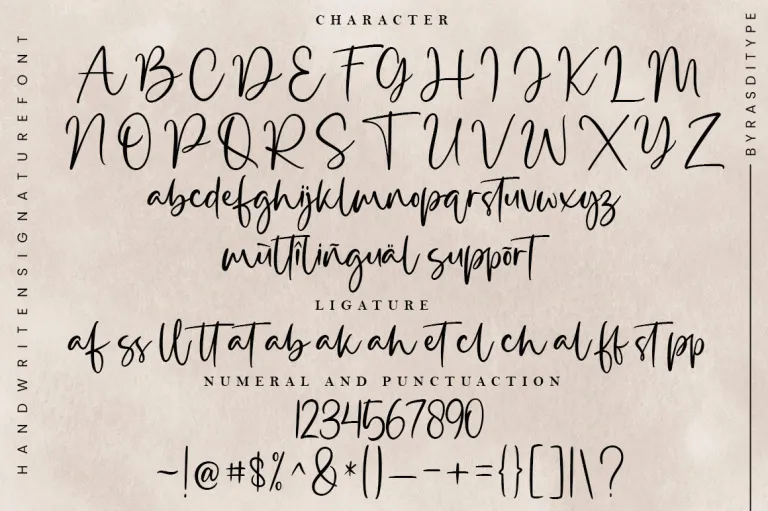 CHARACTER
ABCDEFGHIJKLM
NOPQRSTUVWXYZ
abcdefghijklmnopqrstuvwxyz
mūltîlingüäl süppõrt
LIGATURE
af ss ll tt at ab ak ah et cl ch al ff st pp
NUMERAL AND PUNCTUACTION
1234567890
~!@#$%^&*()_-+={}[]|\?
HANDWRITENSIGNATUREFONT
BYRASDITYPE